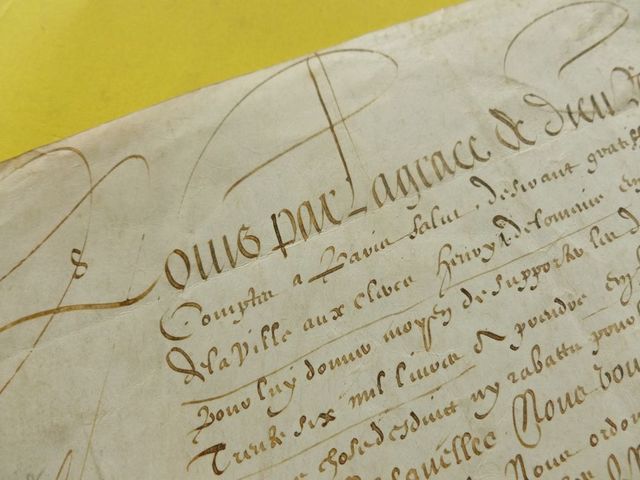 Louis par La grace de Dieu
Comptes a Paris salut, desirant gratif
de la Ville aux clercs Henry de Lomenie
Pour luy donner moyen de supporter les d
Trente six mil livres a prendre
chose desduict ny rabattu pour
Lesquelles Nous vou
Nous ordon